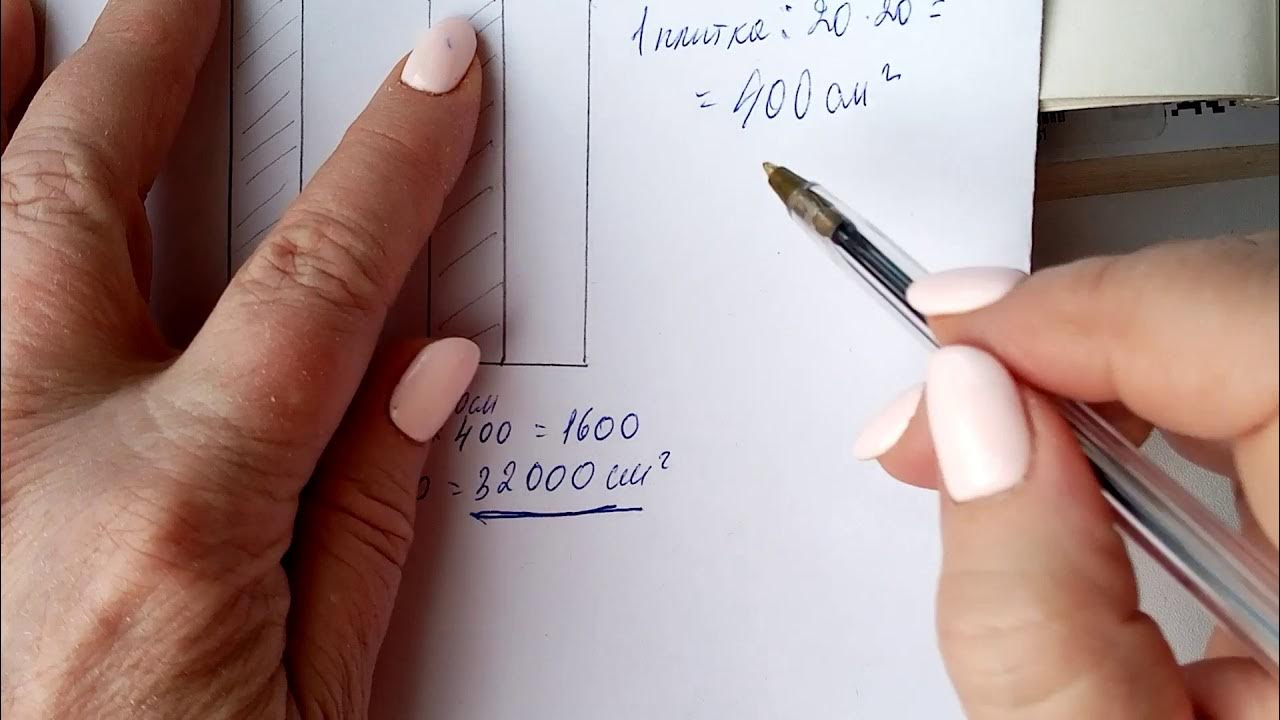 1 плитка: 20 · 20 =
= 400 см²
0см
· 400 = 1600
0 = 32000 см²